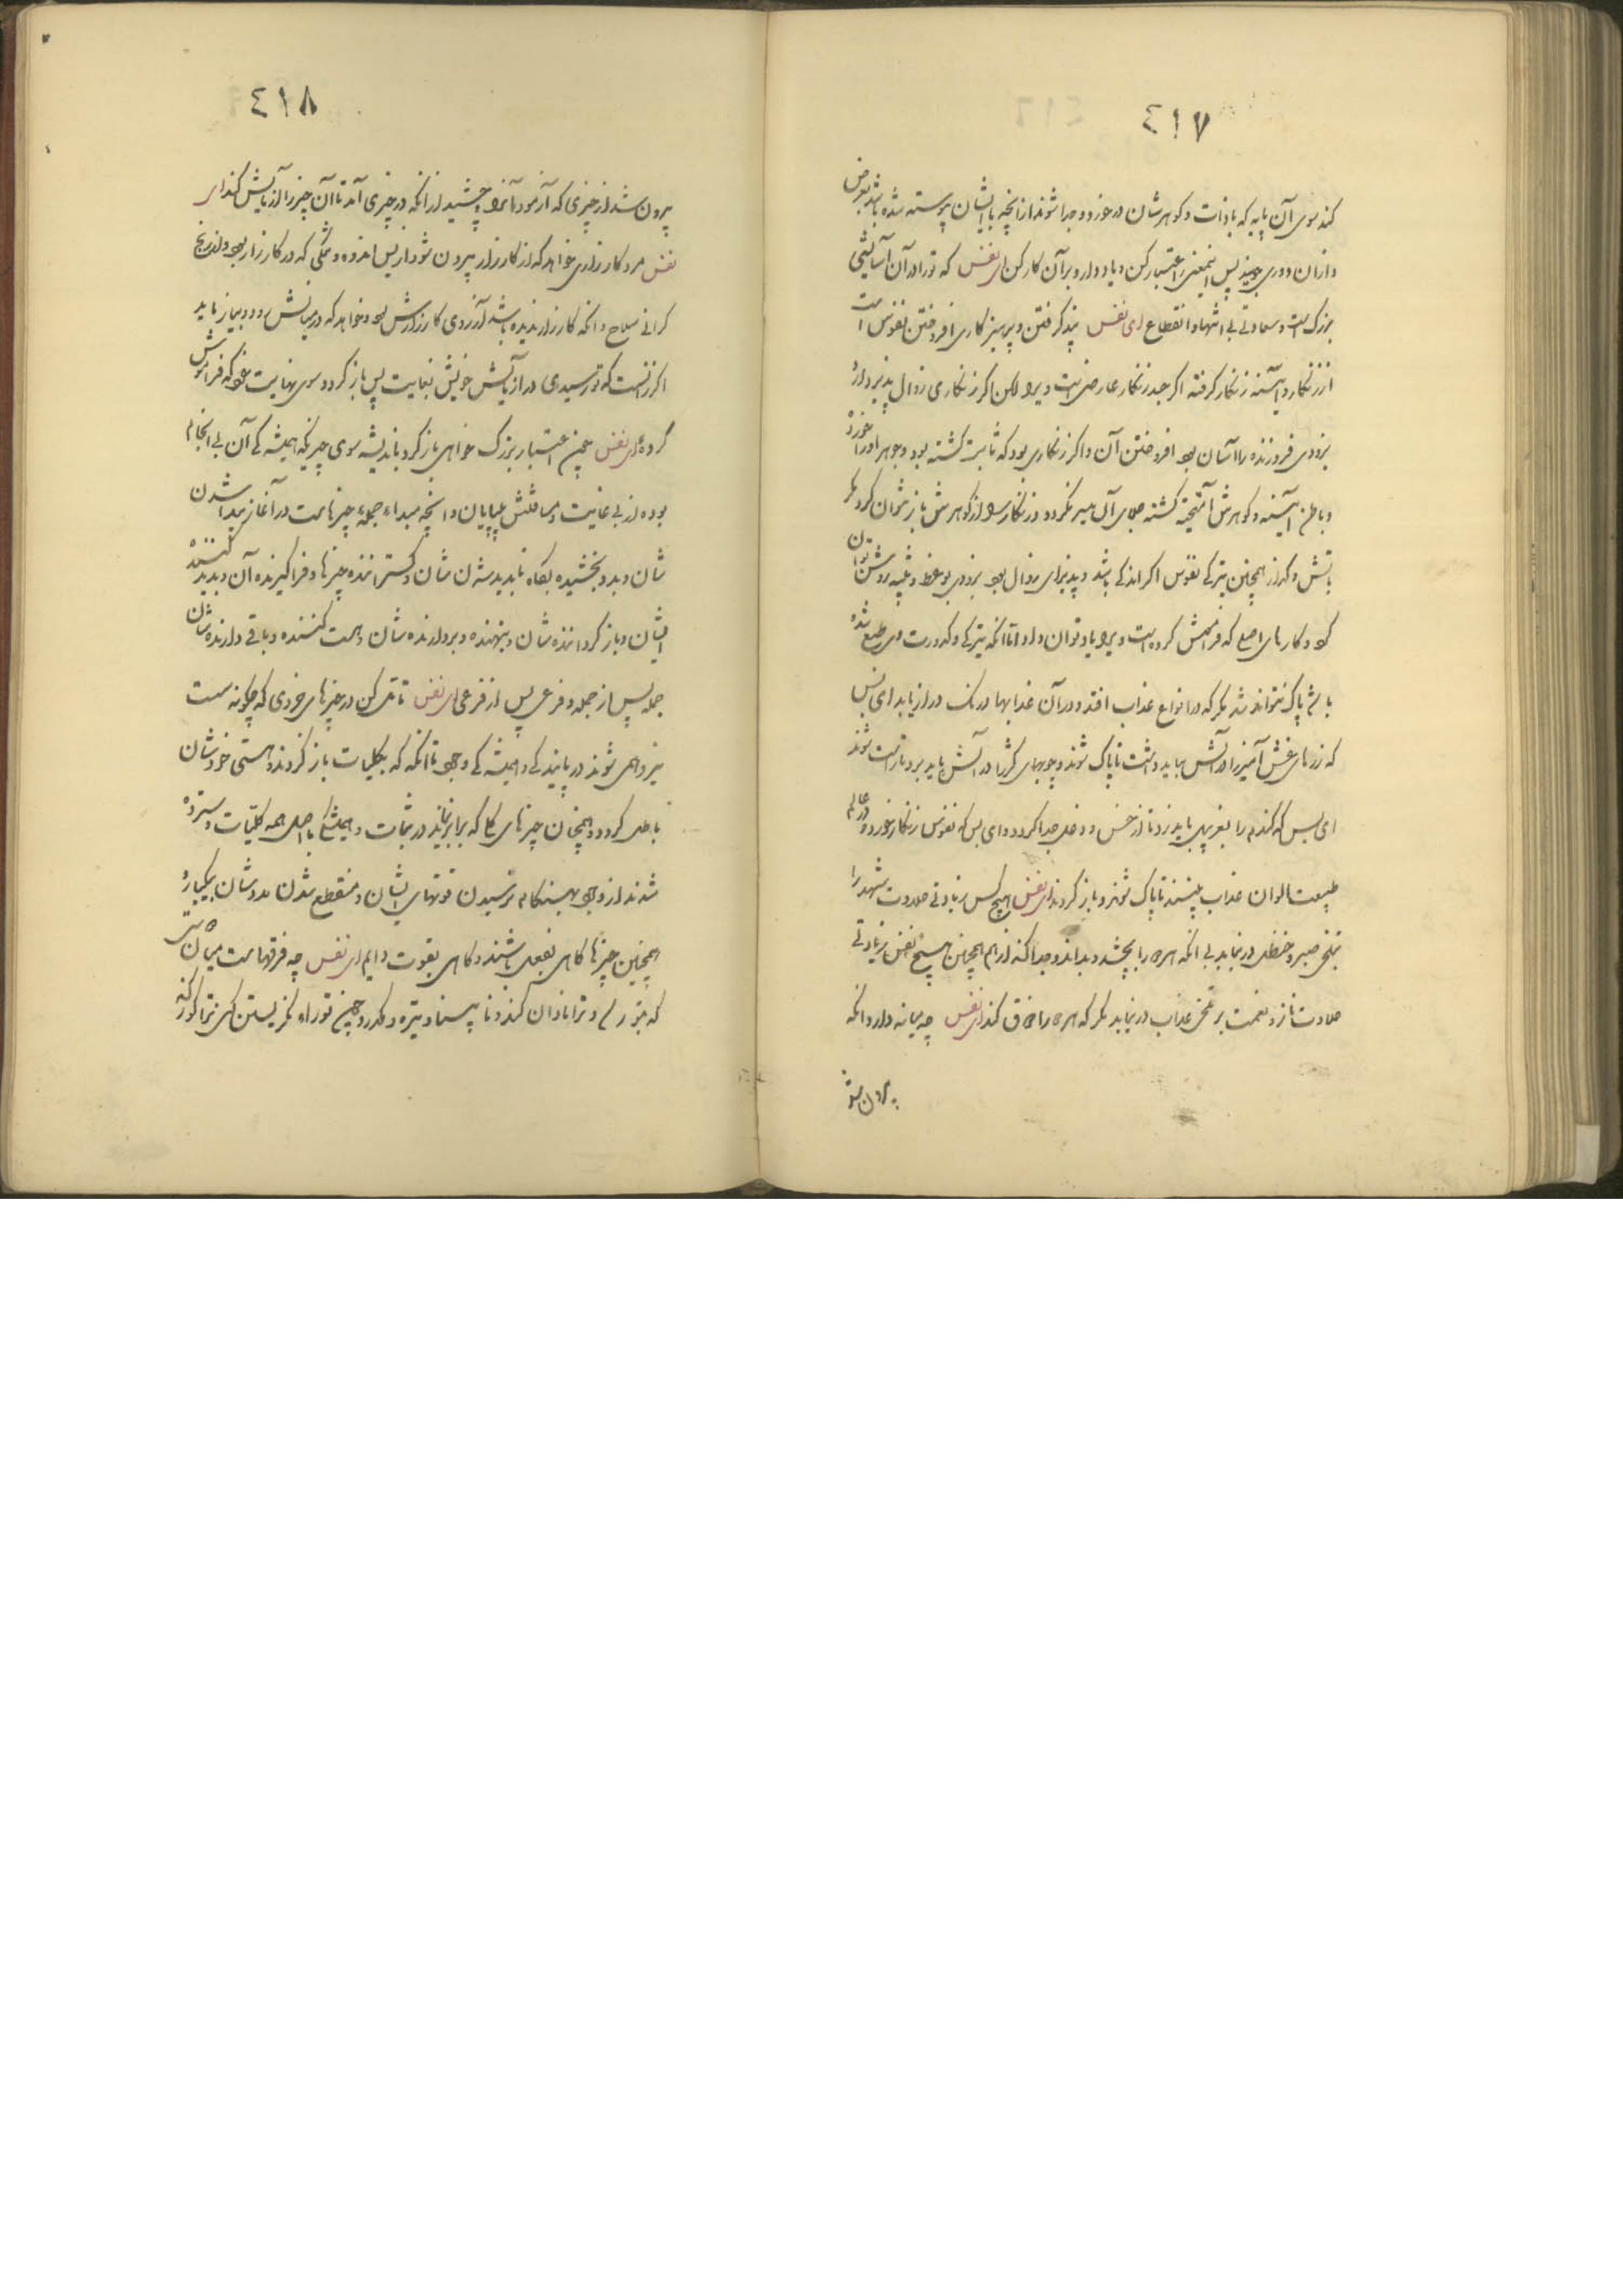 ٤١٧
کند سوی آن پایه که با ذات و کوهرشان درخورد و جدا شوند ازانچه با ایشان پیوسته شده باشد بعرض
و ازان دوری جویند پس این معنی را اعتبار کن و یاد دار و بر آن کار کن ای نفس که ترا در آن آسایشی
بزرکست و سعادتی بی انتها و انقطاع ای نفس پند کرفتن و پرهیزکاری افروختن نفوس است
از زنکار و آیینه زنکار کرفته اکر چند زنکار عارضی است ویرا لکن اکر زنکاری زوال پذیر دارد
بزودی فروزنده را آسان بود افروختن آن و اکر زنکاری بود که ثابت کشته بود و جوهر او را خورده
و باطن آیینه و کوهرش آمیخته کشته جلای آن میسر نکردد و زنکارش از کوهرش باز نتوان کرد مکر
بآتش و کداز همچنین تیرکی نفوس اکر اندکی باشد و پذیرای زوال بود بزودی بوعظ و تنبیه روشن توان
کرد و کارهای اصلی که فراموش کرده است ویرا یاد توان داد اما انکه تیرکی و کدورت وی طبع شده
باشد پاک نتواند شد مکر که در انواع عذاب افتد و در آن عذابها درنک دراز یابد ای بس
که زرهای غش آمیز را در آتش بباید داشت تا پاک شوند و چوبهای کژ را در آتش باید برد تا راست شوند
ای بس که کندم را بغربیل باید زد تا از خس و دخل جدا کردد و ای بس که نفوس زنکار خورده در عالم
طبیعت الوان عذاب بینند تا پاک شوند و باز کردند ای نفس هیچ کس زیادتی حلاوت شهد را
بتلخی صبر و حنظل درنیابد بی انکه هر دو را بچشد و بداند و جدا کند از هم همچنین هیچ نفس زیادتی
حلاوت ناز و نعمت بر تلخی عذاب درنیابد مکر که هر دو را ذوق کند ای نفس چه میانه دارد انکه
بیرون شد
٤١٨
بیرون شد از چیزی که آزمود آنرا و چشید از انکه در چیزی آمد تا آن چیز را آزمایش کند ای
نفس مرد کارزاری خواهد که از کارزار بیرون شود از بس اندوه و تنکی که در کارزار بود و از رنج
کرانی سلاح و انکه کارزار ندیده باشد آرزوی کارزارش بود و خواهد که در میانش رود و بیازماید
اکر ازانست که تو رسیدی در آزمایش خویش بغایت پس باز کرد سوی نهایت خود که فراموش
کرده ای نفس همین اعتبار بزرک خواهی باز کرد باندیشه سوی چیزیکه همیشکی آن بی انجام
بوده از بی غایت و مسافتش بی پایان و انچه مبداء جمله چیزهاست در آغاز پیدا شدن
شان و بدو بخشیده بکاه ناپدید شدن شان و کستراننده چیزها و فراکیرنده آن و پدید کننده
ایشان و باز کرداننده شان و بنهنده و بردارنده شان و هست کننده و باقی دارنده شان
جمله پس از جمله و فرعی پس از فرعی ای نفس تامل کن در چیزهای جزوی که چکونه هست
نیرو همی شوند در پایندکی و همیشکی وجود تا انکه که بکلیات باز کردند و هستی خودشان
باطل کردد و همچنان چیزهای کلی که برابر نیایند در ثبات و همیشکی با اصل همه کلیات و سترده
شدند از وجود بهنکام نرسیدن قوتهای ایشان و منقطع شدن مددشان بیکباره
همچنین چیزها کاهی بفعل باشند و کاهی بقوت دایم ای نفس چه فرقهاست میان آن تن
که بتو رسد و ترا نادان کند و نابینا و تیره و مکدر و چیز تو را نکریستن کسی ترا کور کند